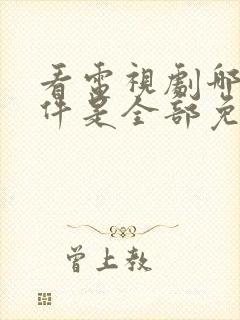 看電視劇哪
件是全部免
曾上教